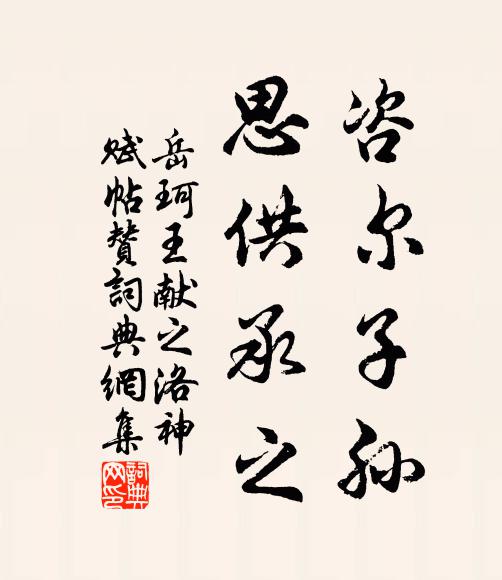 咨尔子孙
思供承之
岳珂王献之洛神
赋帖赞詞典網集
詞典网印